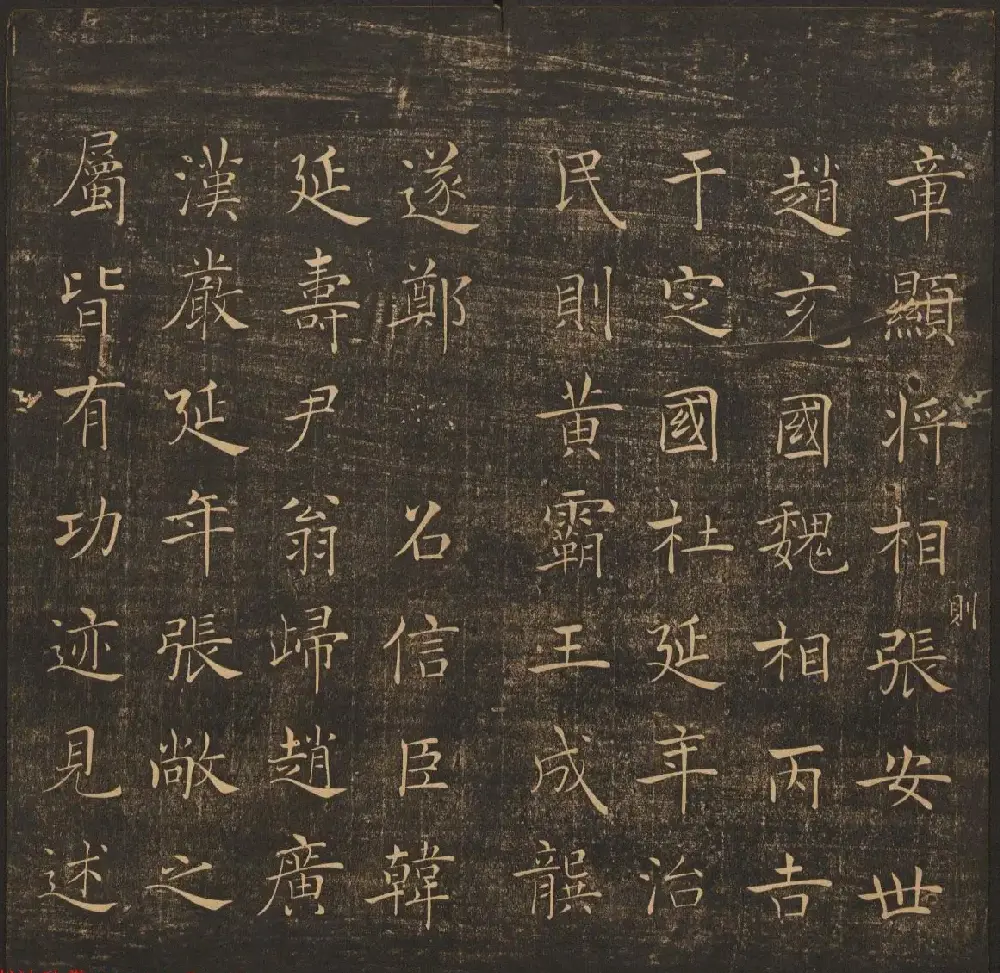 章顯将相張安世
則
趙充國魏相丙吉
于定國杜延年治
民則黄霸王成龔
遂鄭召信臣韓
延壽尹翁歸趙廣
漢嚴延年張敞之
屬皆有功迹見述